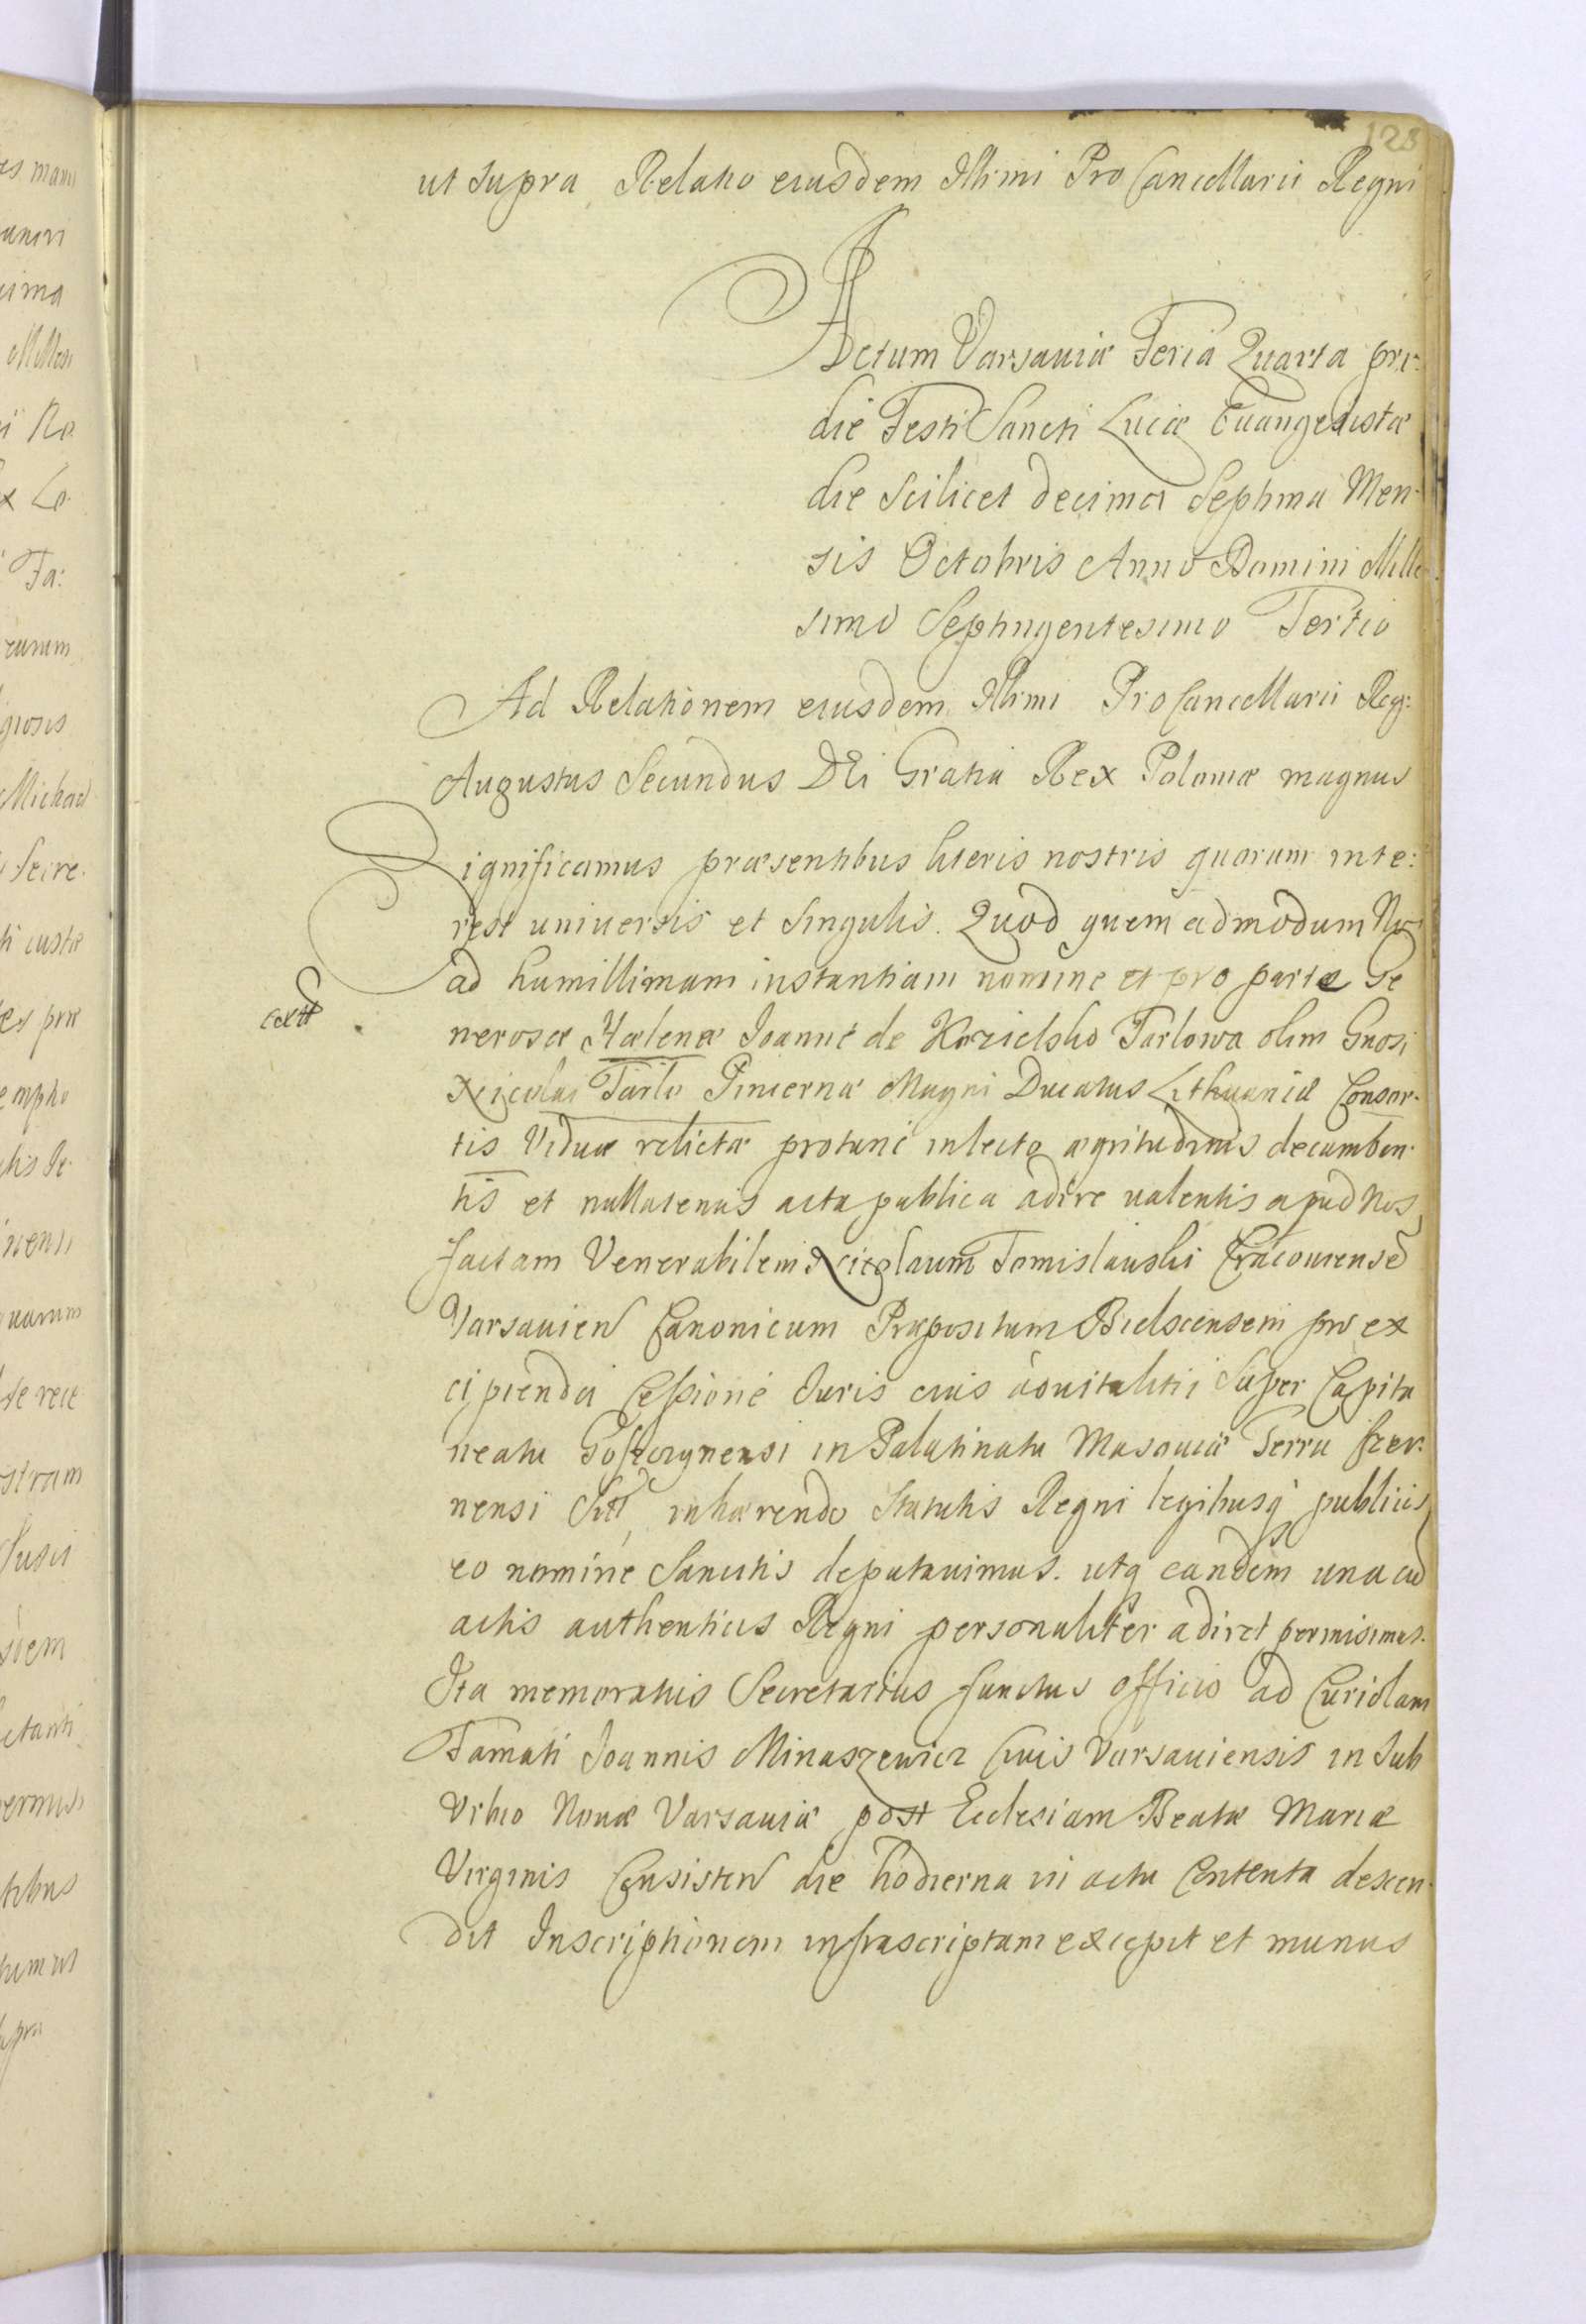 128
ut supra Relatio eiusdem Illrimi Pro Cancellarii Regni
Actum Varsaviæ Feria Quarta pri:
die Festi Sancti Lucæ Evangelistæ
die scilicet decima Septima Men-
sis Octobris Anno Domini Mille
simo Septingentesimo Tertio
Ad Relationem eiusdem Illrimi Pro Cancellarii Reg:
Augustus Secundus DEi Gratia Rex Poloniæ magnus
Significamus præsentibus literis nostris quorum inte:
rest universis et singulis. Quod quem admodum Nos
ad humillimam instantiam nomine et pro parte Ge
nerosæ Hælenæ Joannæ de Kozielsko Tarlowa olim Gnosi
Nicolai Tarlo Pincernæ Magni Ducatus Lithuaniæ Consor-
tis Viduæ relictæ protunc in lecto ægritudinis decumben-
tis et nullatenus acta publica adire valentis apud Nos
factam Venerabilem Nicolaum Tomislawski Cracoviensē
Varsavien Canonicum Præpositum Bielscensem pro ex
cipienda Cessione Juris eius advitalitii super Capita
neatu Gostczynensi in Palatinatu Masoviæ Terra Czer:
nensi Sitt, inhærendo Statutis Regni legibusq publicis
eo nomine sancitis deputavimus. utq eandem una cū
actis authenticis Regni personaliter adiret permisimus.
Ita memoratus Secretarius functus officio ad Curiolam
Famati Joannis Minaszewicz Civis Varsaviensis in Sub
Urbio Novæ Varsaviæ post Ecclesiam Beatæ Mariæ
Virginis Consisten die hodierna in actu Contenta descen-
dit Inscriptionem infrascriptam excepit et munus